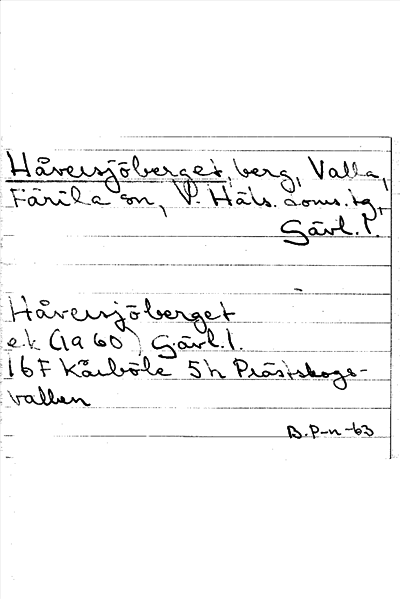 Håversjöberget, berg, Valla,
Färila sn, V. Häls. doms. tg,
Gävl. l.
Håversjöberget
ek (1960) Gävl. l.
16F Kårböle 5h Prästskogs-
vallen
B. P-n -63